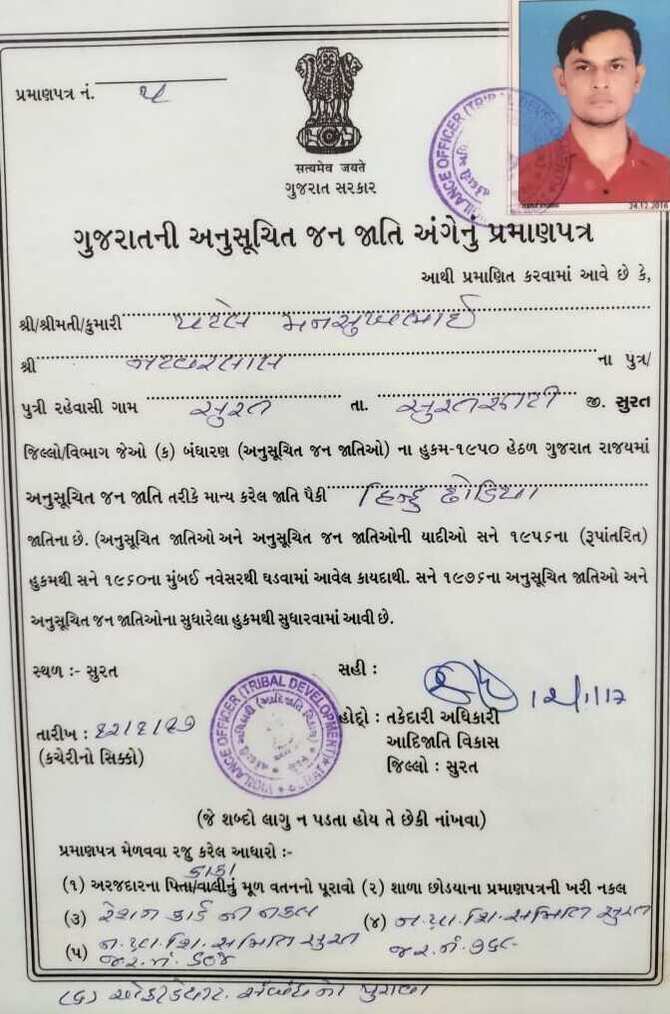 24.12.2016
પ્રમાણપત્ર નં.
सत्यमेव जयते
ગુજરાત સરકાર
ગુજરાતની અનુસૂચિત જન જાતિ અંગેનું પ્રમાણપત્ર
આથી પ્રમાણિત કરવામાં આવે છે કે,
શ્રી/શ્રીમતી/કુમારી પટેલ મનસુખભાઈ
શ્રી નટવરલાલ ના પુત્ર/
પુત્રી રહેવાસી ગામ સુરત તા. સુરતસીટી જી. સુરત
જિલ્લો/વિભાગ જેઓ (ક) બંધારણ (અનુસૂચિત જન જાતિઓ) ના હુકમ-૧૯૫૦ હેઠળ ગુજરાત રાજયમાં
અનુસૂચિત જન જાતિ તરીકે માન્ય કરેલ જાતિ પૈકી હિન્દુ ઢોડિયા
જાતિના છે. (અનુસૂચિત જાતિઓ અને અનુસૂચિત જન જાતિઓની યાદીઓ સને ૧૯૫૬ના (રૂપાંતરિત)
હુકમથી સને ૧૯૬૦ના મુંબઈ નવેસરથી ઘડવામાં આવેલ કાયદાથી. સને ૧૯૭૬ના અનુસૂચિત જાતિઓ અને
અનુસૂચિત જન જાતિઓના સુધારેલા હુકમથી સુધારવામાં આવી છે.
સ્થળ :- સુરત
સહી :
હોદ્દો : તકેદારી અધિકારી
તારીખ :
આદિજાતિ વિકાસ
(કચેરીનો સિક્કો)
જિલ્લો : સુરત
VIGILANCE OFFICER (TRIBAL DEVELOPMENT)
(જે શબ્દો લાગુ ન પડતા હોય તે છેકી નાંખવા)
પ્રમાણપત્ર મેળવવા રજુ કરેલ આધારો :-
કાકા
(૧) અરજદારના પિતા/વાલીનું મૂળ વતનનો પૂરાવો (૨) શાળા છોડયાના પ્રમાણપત્રની ખરી નકલ
(૩) રેશન કાર્ડ ની નકલ (૪) ન.પ્રા.શિ.સમિતિ સુરત
(૫) ન.પ્રા.શિ.સમિતિ સુરત જ.ર.નં.
જ.ર.નં.
(૬) એફીડેવીટ. સંબંધ નો પુરાવા